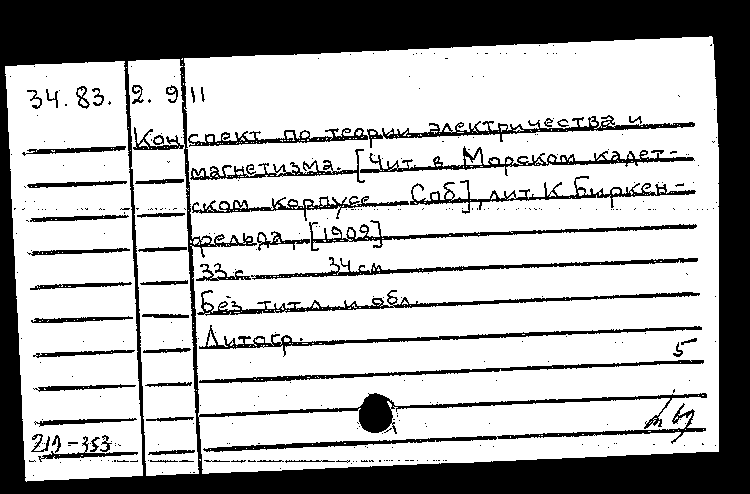 34.83.2.911
Конспект по теории электричества и
магнетизма. [Чит. в Морском кадет-
ском корпусе Спб], лит. К Биркен-
фельда, [1902]
33 с 34 см
Без тит. л. и обл.
Литогр.
5
219-353